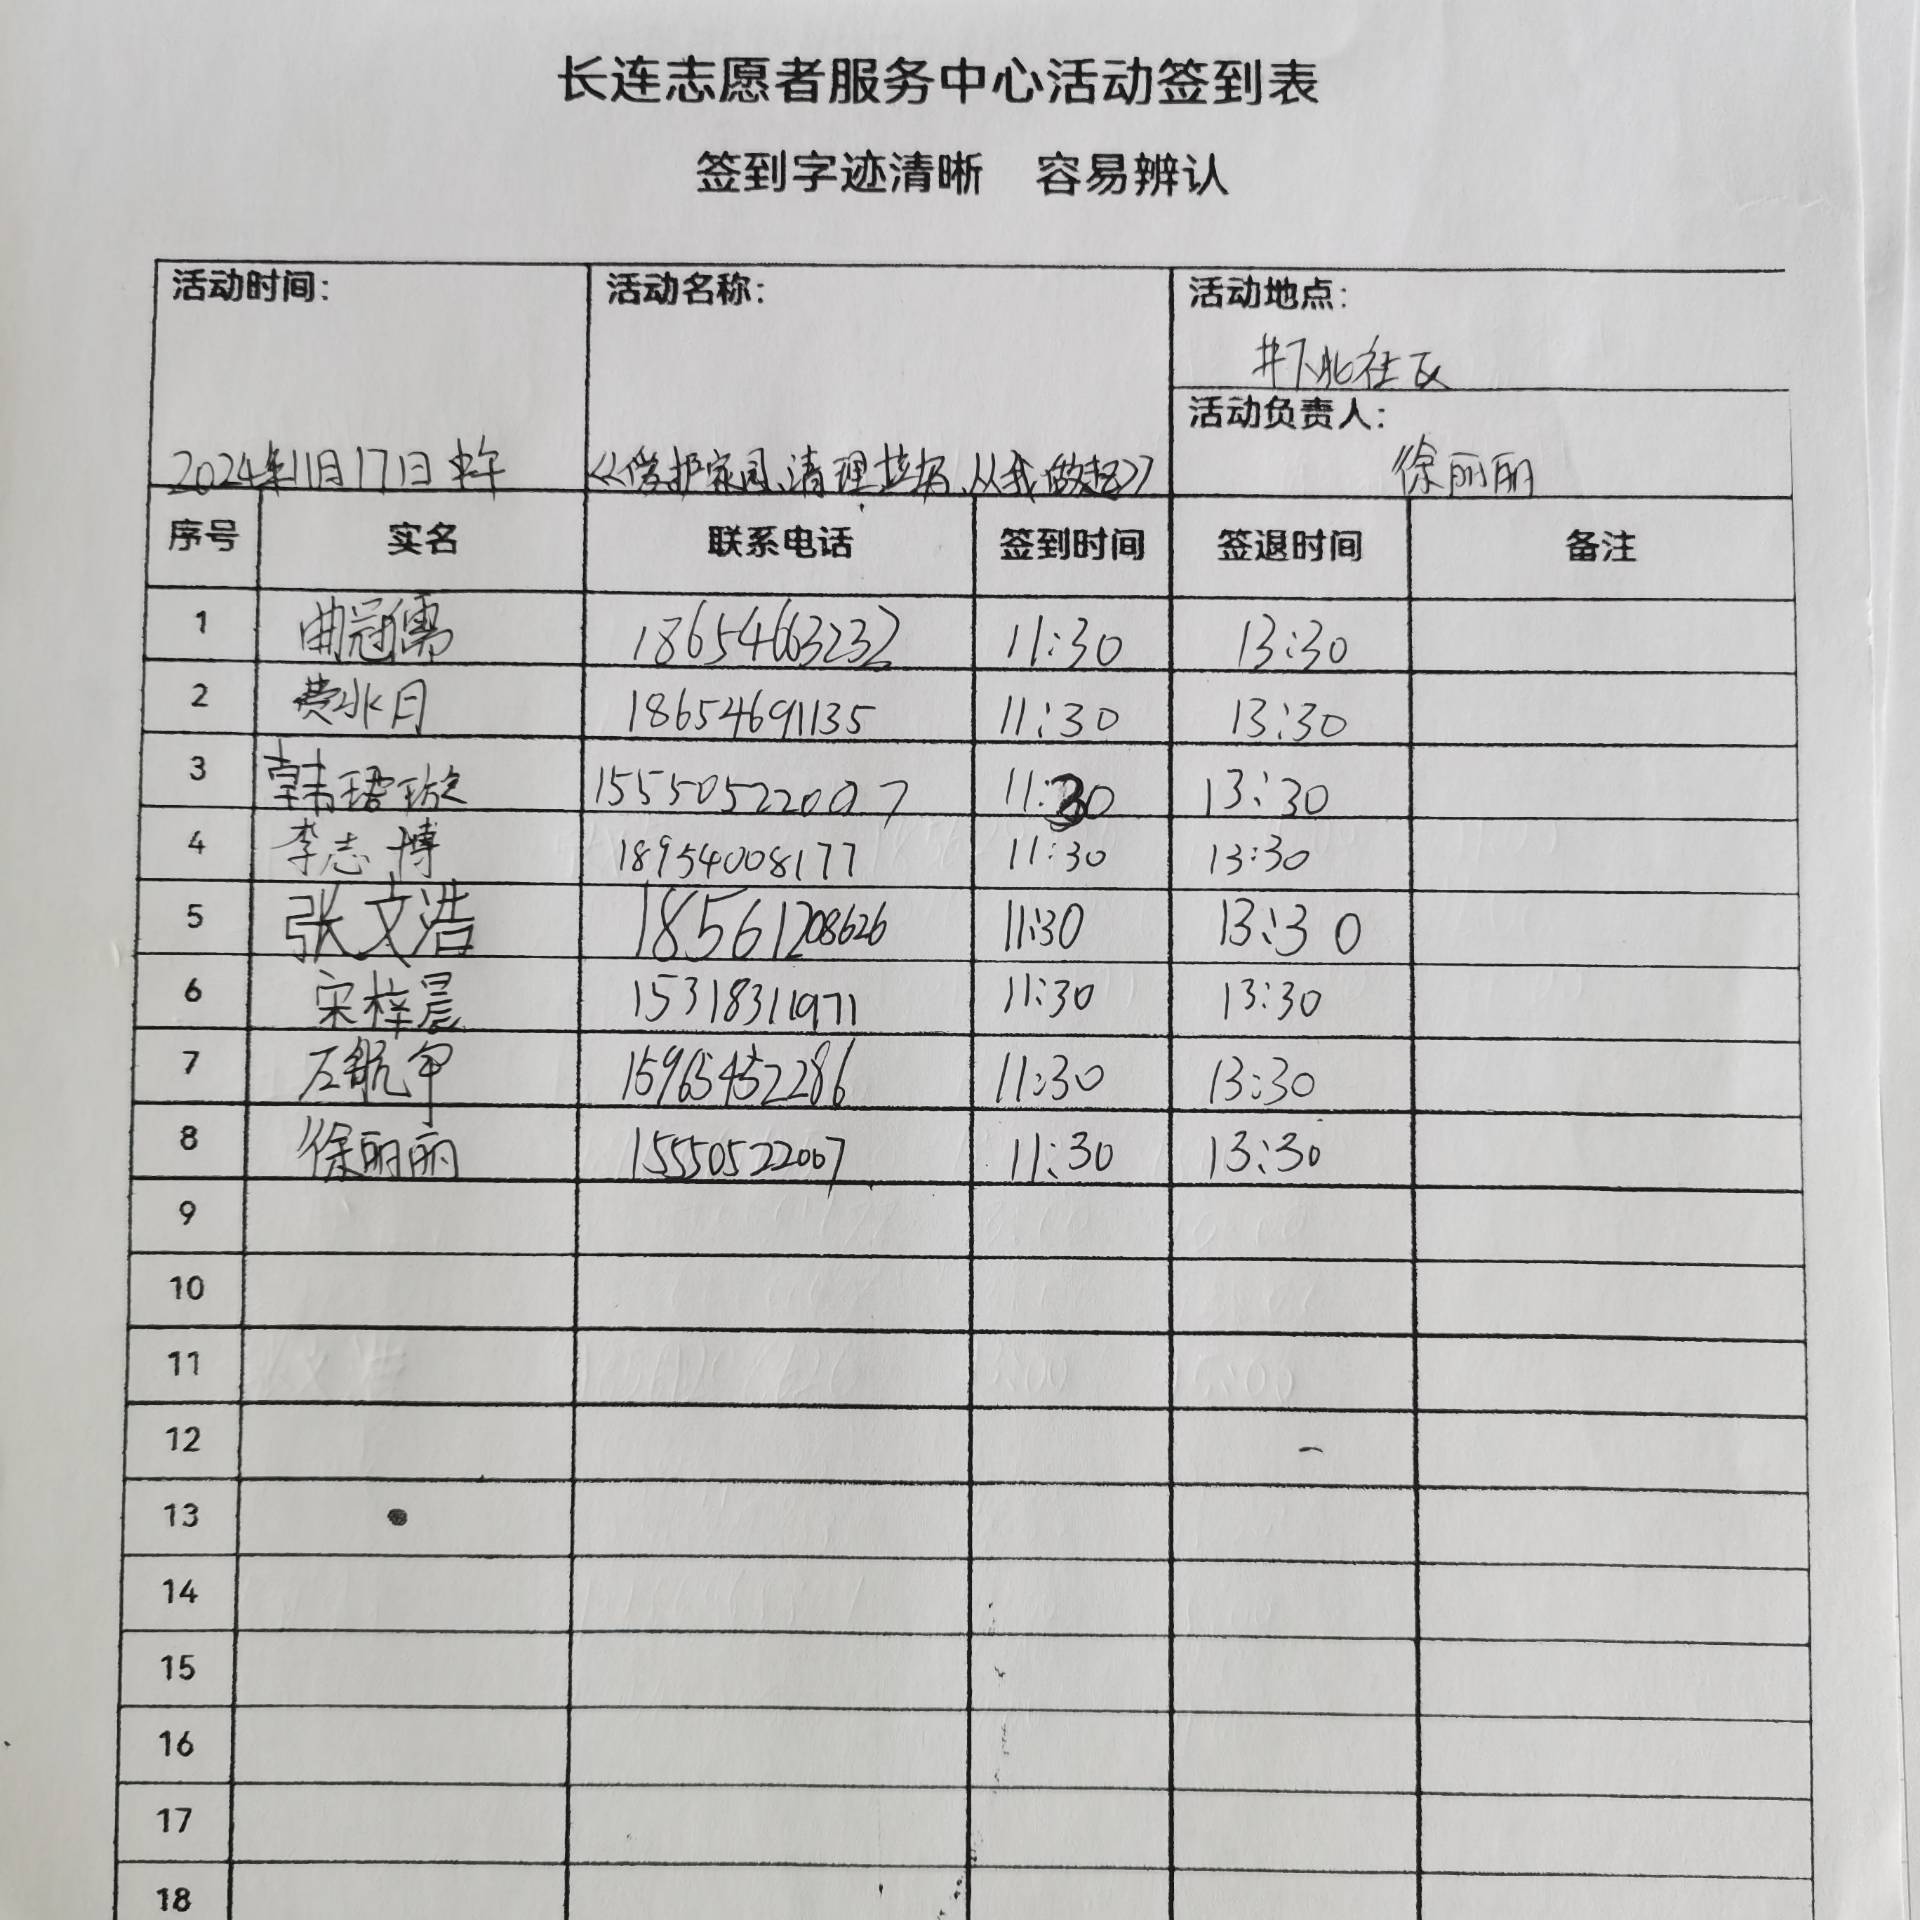 长连志愿者服务中心活动签到表
签到字迹清晰 容易辨认
活动时间: 活动名称: 活动地点:
井下北社区
活动负责人:
2024年11月17日中午 《爱护家园、清理垃圾、从我做起》 徐丽丽
序号 实名 联系电话 签到时间 签退时间 备注
1 曲冠儒 18654663232 11:30 13:30
2 费冰月 18654691135 11:30 13:30
3 韩珺璇 15550522007 11:30 13:30
4 李志博 18954008177 11:30 13:30
5 张文浩 18561208626 11:30 13:30
6 宋梓晨 15318311971 11:30 13:30
7 左航 15965452286 11:30 13:30
8 徐丽丽 15550522007 11:30 13:30
9
10
11
12
13
14
15
16
17
18